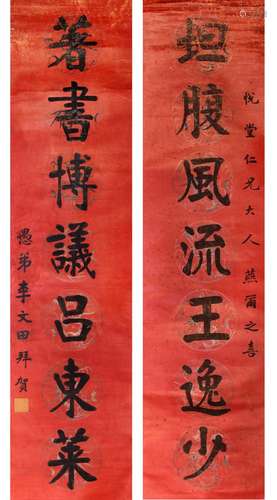 悅堂仁兄大人燕爾之喜
坦腹風流王逸少
著書博議呂東萊
愚弟李文田拜賀